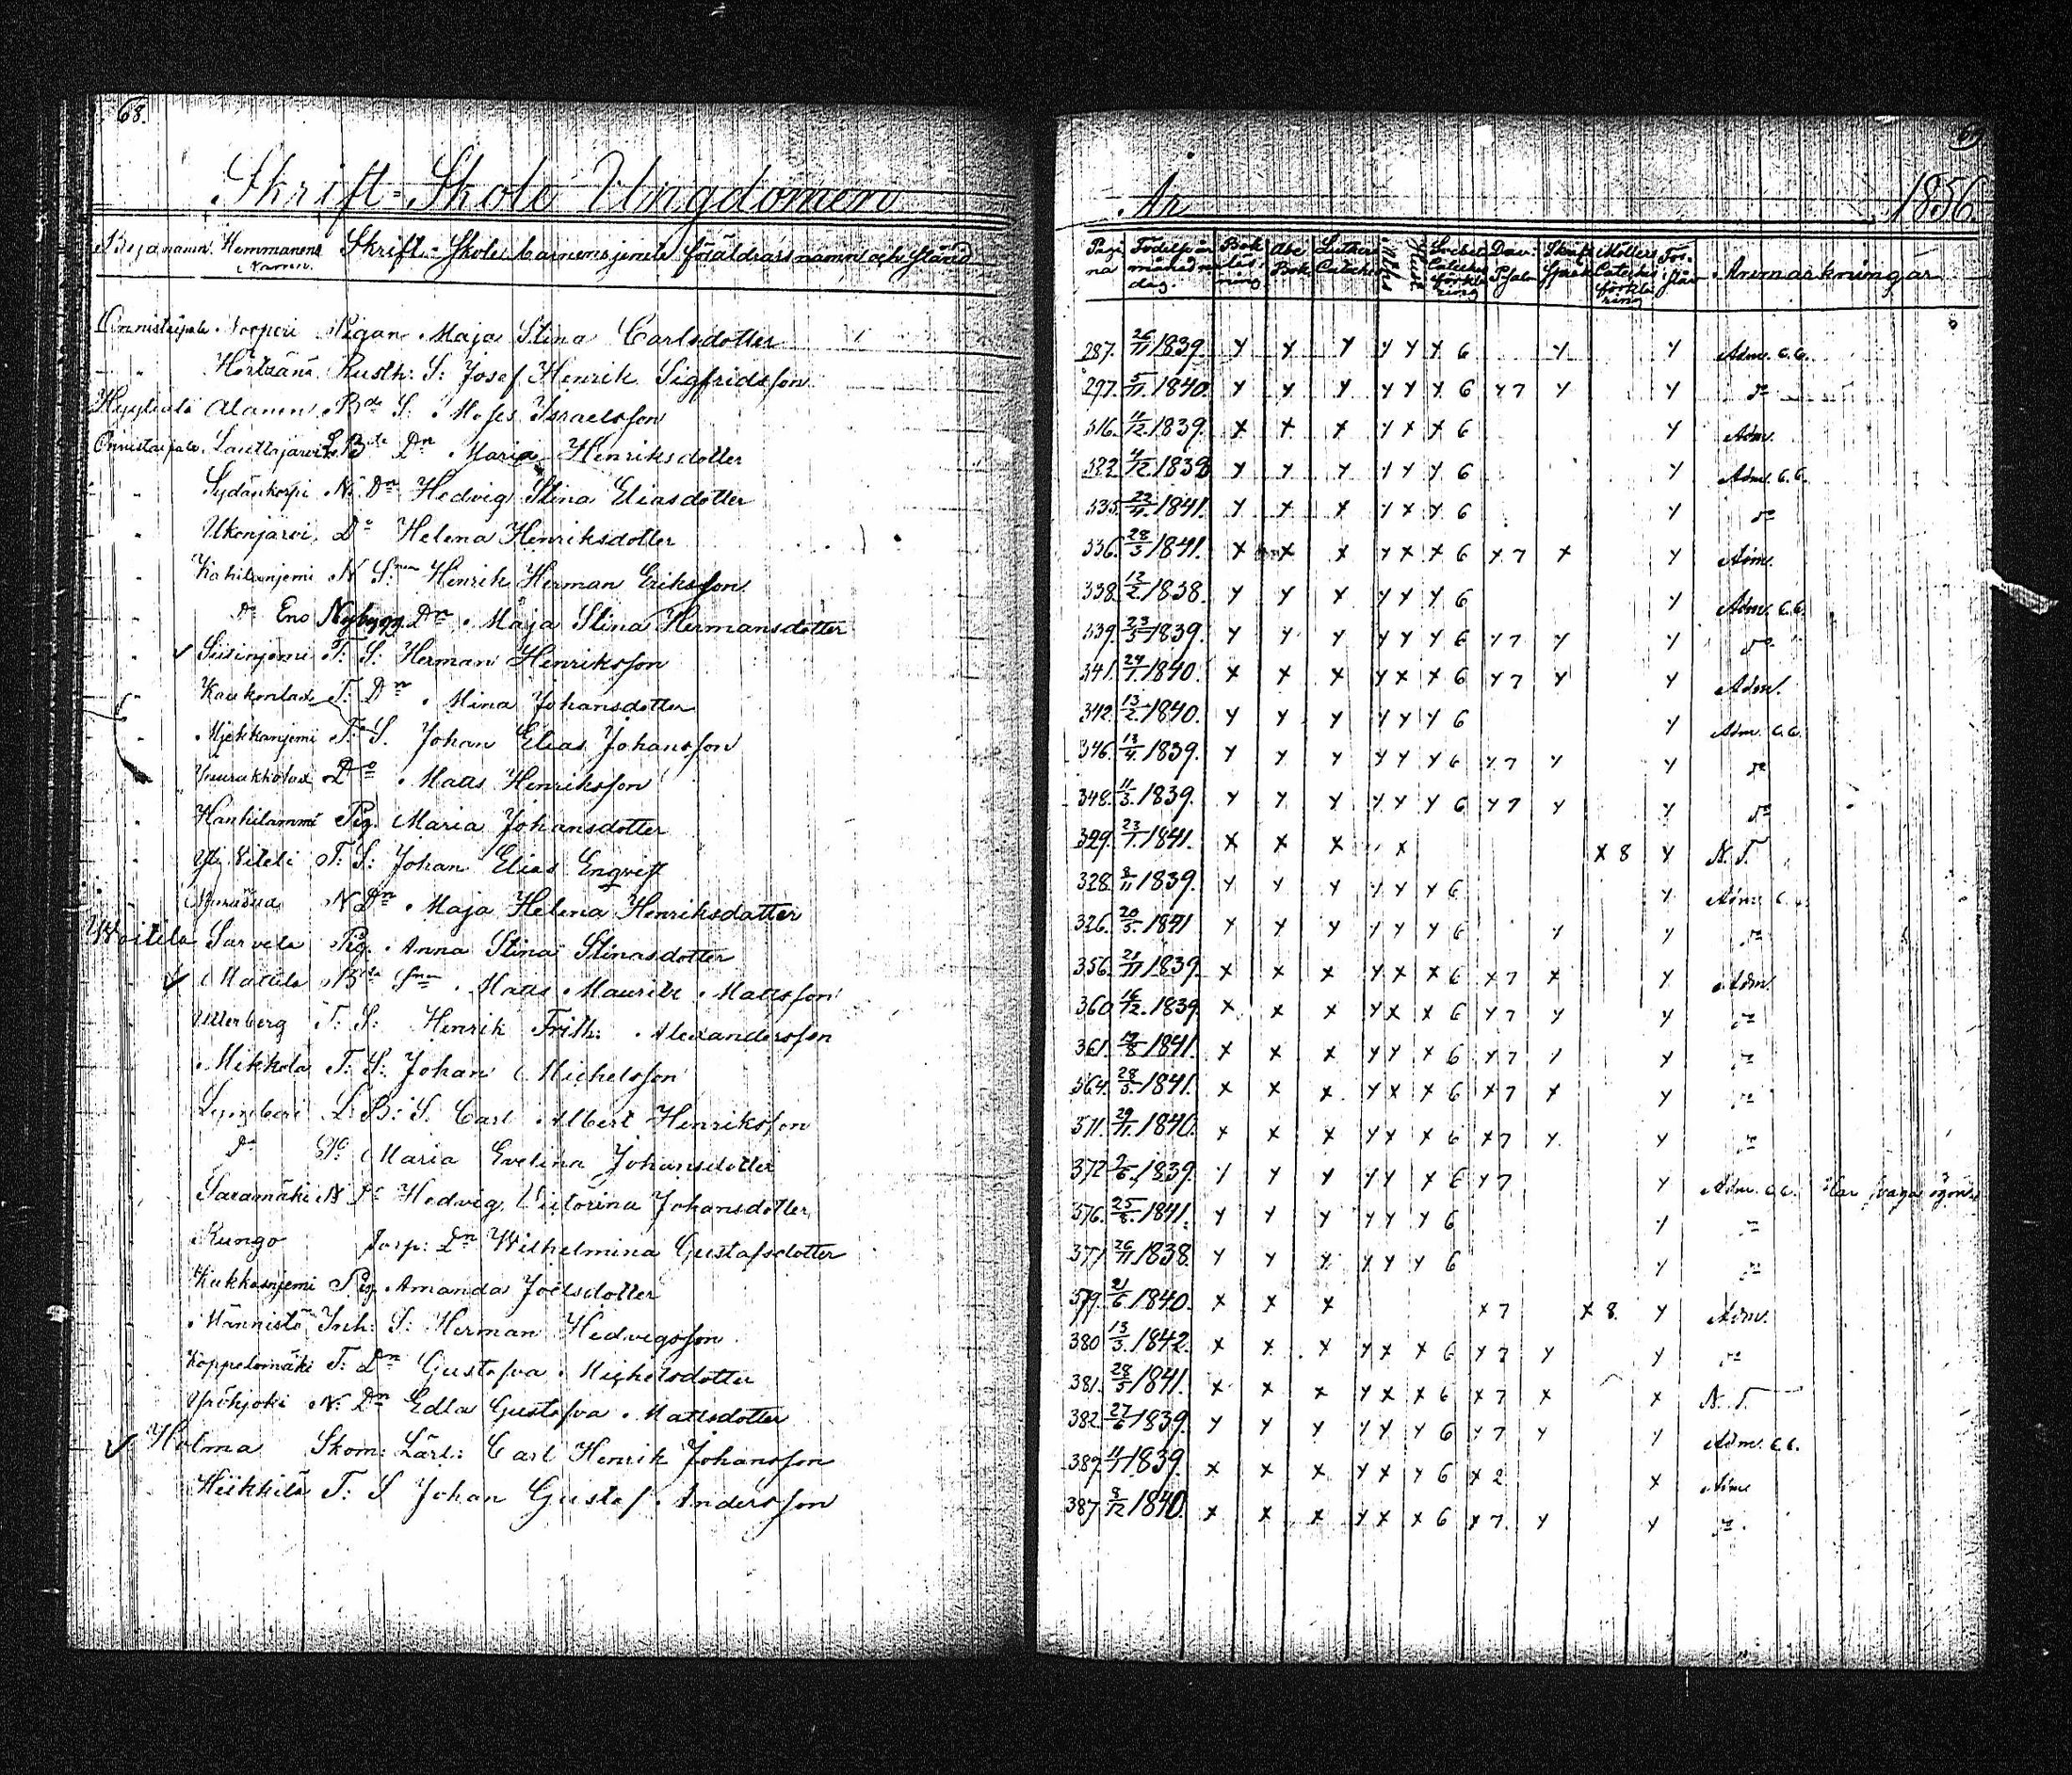 68.
Skrift-Skole Ungdomen
Byanamn. Hemmanens Namn. Skrift-Skole barnens jemte föräldrars namn och stånd
Onnistaipale Norperi Pigan Maja Stina Carlsdotter
" Rusth: S: Josef Henrik Sigfridsson
Alanen Bde S: Moses Israelsson
Onnistaipale Lauttajärvi Dn Maria Henriksdotter
" Sydänkorpi N. Dn Hedvig Stina Eliasdotter
" Ukonjärvi Do Helena Henriksdotter
" Kahilanjemi N Sn Henrik Herman Eriksson
" Do Eno Nybygg. Dn Maja Stina Hermansdotter
" Susinjemi T: S: Herman Henriksson
" Kaukonlax T. Dn Mina Johansdotter
" T. S. Johan Elias Johansson
" Do Matts Henriksson
" Hankilammi Pig. Maria Johansdotter
" T: S: Johan Elias Engvist
" N Dn Maja Helena Henriksdotter
Woitila Sarvela Pig. Anna Stina Stinasdotter
Mattila Bde Sn Matts Maurits Mattsson
Utterberg T. S: Henrik Frith: Alexandersson
Mikkola T. S: Johan Michelsson
L. B: S. Carl Albert Henriksson
Do Maria Evelina Johansdotter
Saramäki N Do Hedvig Victorina Johansdotter
Kungo Torp: Dn Wilhelmina Gustafsdotter
Kukkonjemi Pig Amanda Joelsdotter
Männistö Inh: S: Herman Hedvigsson
Koppelomäki T: Dn Gustafva Michelsdotter
N: Dn Edla Gustafva Mattsdotter
Holma Skom: Lärl: Carl Henrik Johansson
Heikkilä T: S Johan Gustaf Andersson
69
År 1856.
Pagina Födelseår månad dag. Bok läsning Abc Bok Lutheri Cateches Dav: Psalm Förstån Anmärkningar
287. 26/11 1839. y y y y y y 6 y y Adm. C.C.
297. 5/11 1840. y y y y y y 6 y 7 y y do
316. 1839. x x x y x x 6 y Adm.
322. 4/12 1838 y y y y y y 6 y Adm. C.C.
335. 1841. y x x y x y 6 y do
336. 28/3 1841. x x x y x x 6 x 7 x y Adm.
338. 12/2 1838. y y x y y y 6 y Adm. C.C.
339. 23/3 1839. y y y y y y 6 y 7 y y do
341. 24/1 1840. x x x y x x 6 y 7 y y Adm.
342. 13/2 1840. y y y y y y 6 y Adm. C.C.
346. 13/4 1839. y y y y y y 6 y 7 y y do
348. 11/3 1839. y y y y y y 6 y 7 y y do
329. 23/1 1841. x x x x x 8 y N. T.
328. 8/11 1839. y y y y y y 6 y Adm. C.C.
326. 20/3 1841 y y y y y y 6 y y do
356. 21/11 1839. x x x y x x 6 x 7 x y Adm.
360 16/12 1839 x x x y x x 6 y 7 y y do
361. 1841. x x x y y x 6 y 7 y y do
364. 28/3 1841. x x x y x x 6 x 7 x y do
371. 29/11 1840. x x x y y x 6 x 7 y y do
372 9/6 1839. y y y y y y 6 y 7 y Adm. C.C. Har svaga ögon
376. 25/8 1841. y y y y y y 6 y do
377 26/11 1838. y y y y y y 6 y do
379. 21/6 1840. x x x x 7 x 8. y Adm.
380 13/3 1842. x x x y x x 6 y 7 y y do
381. 28/5 1841. x x x y x x 6 x 7 x x N. T.
382. 27/6 1839. y y y y y y 6 y 7 y y Adm. C.C.
1839. x x x y x y 6 x 2 x Adm
387 8/12 1840. x x x y x x 6 x 7. y y do